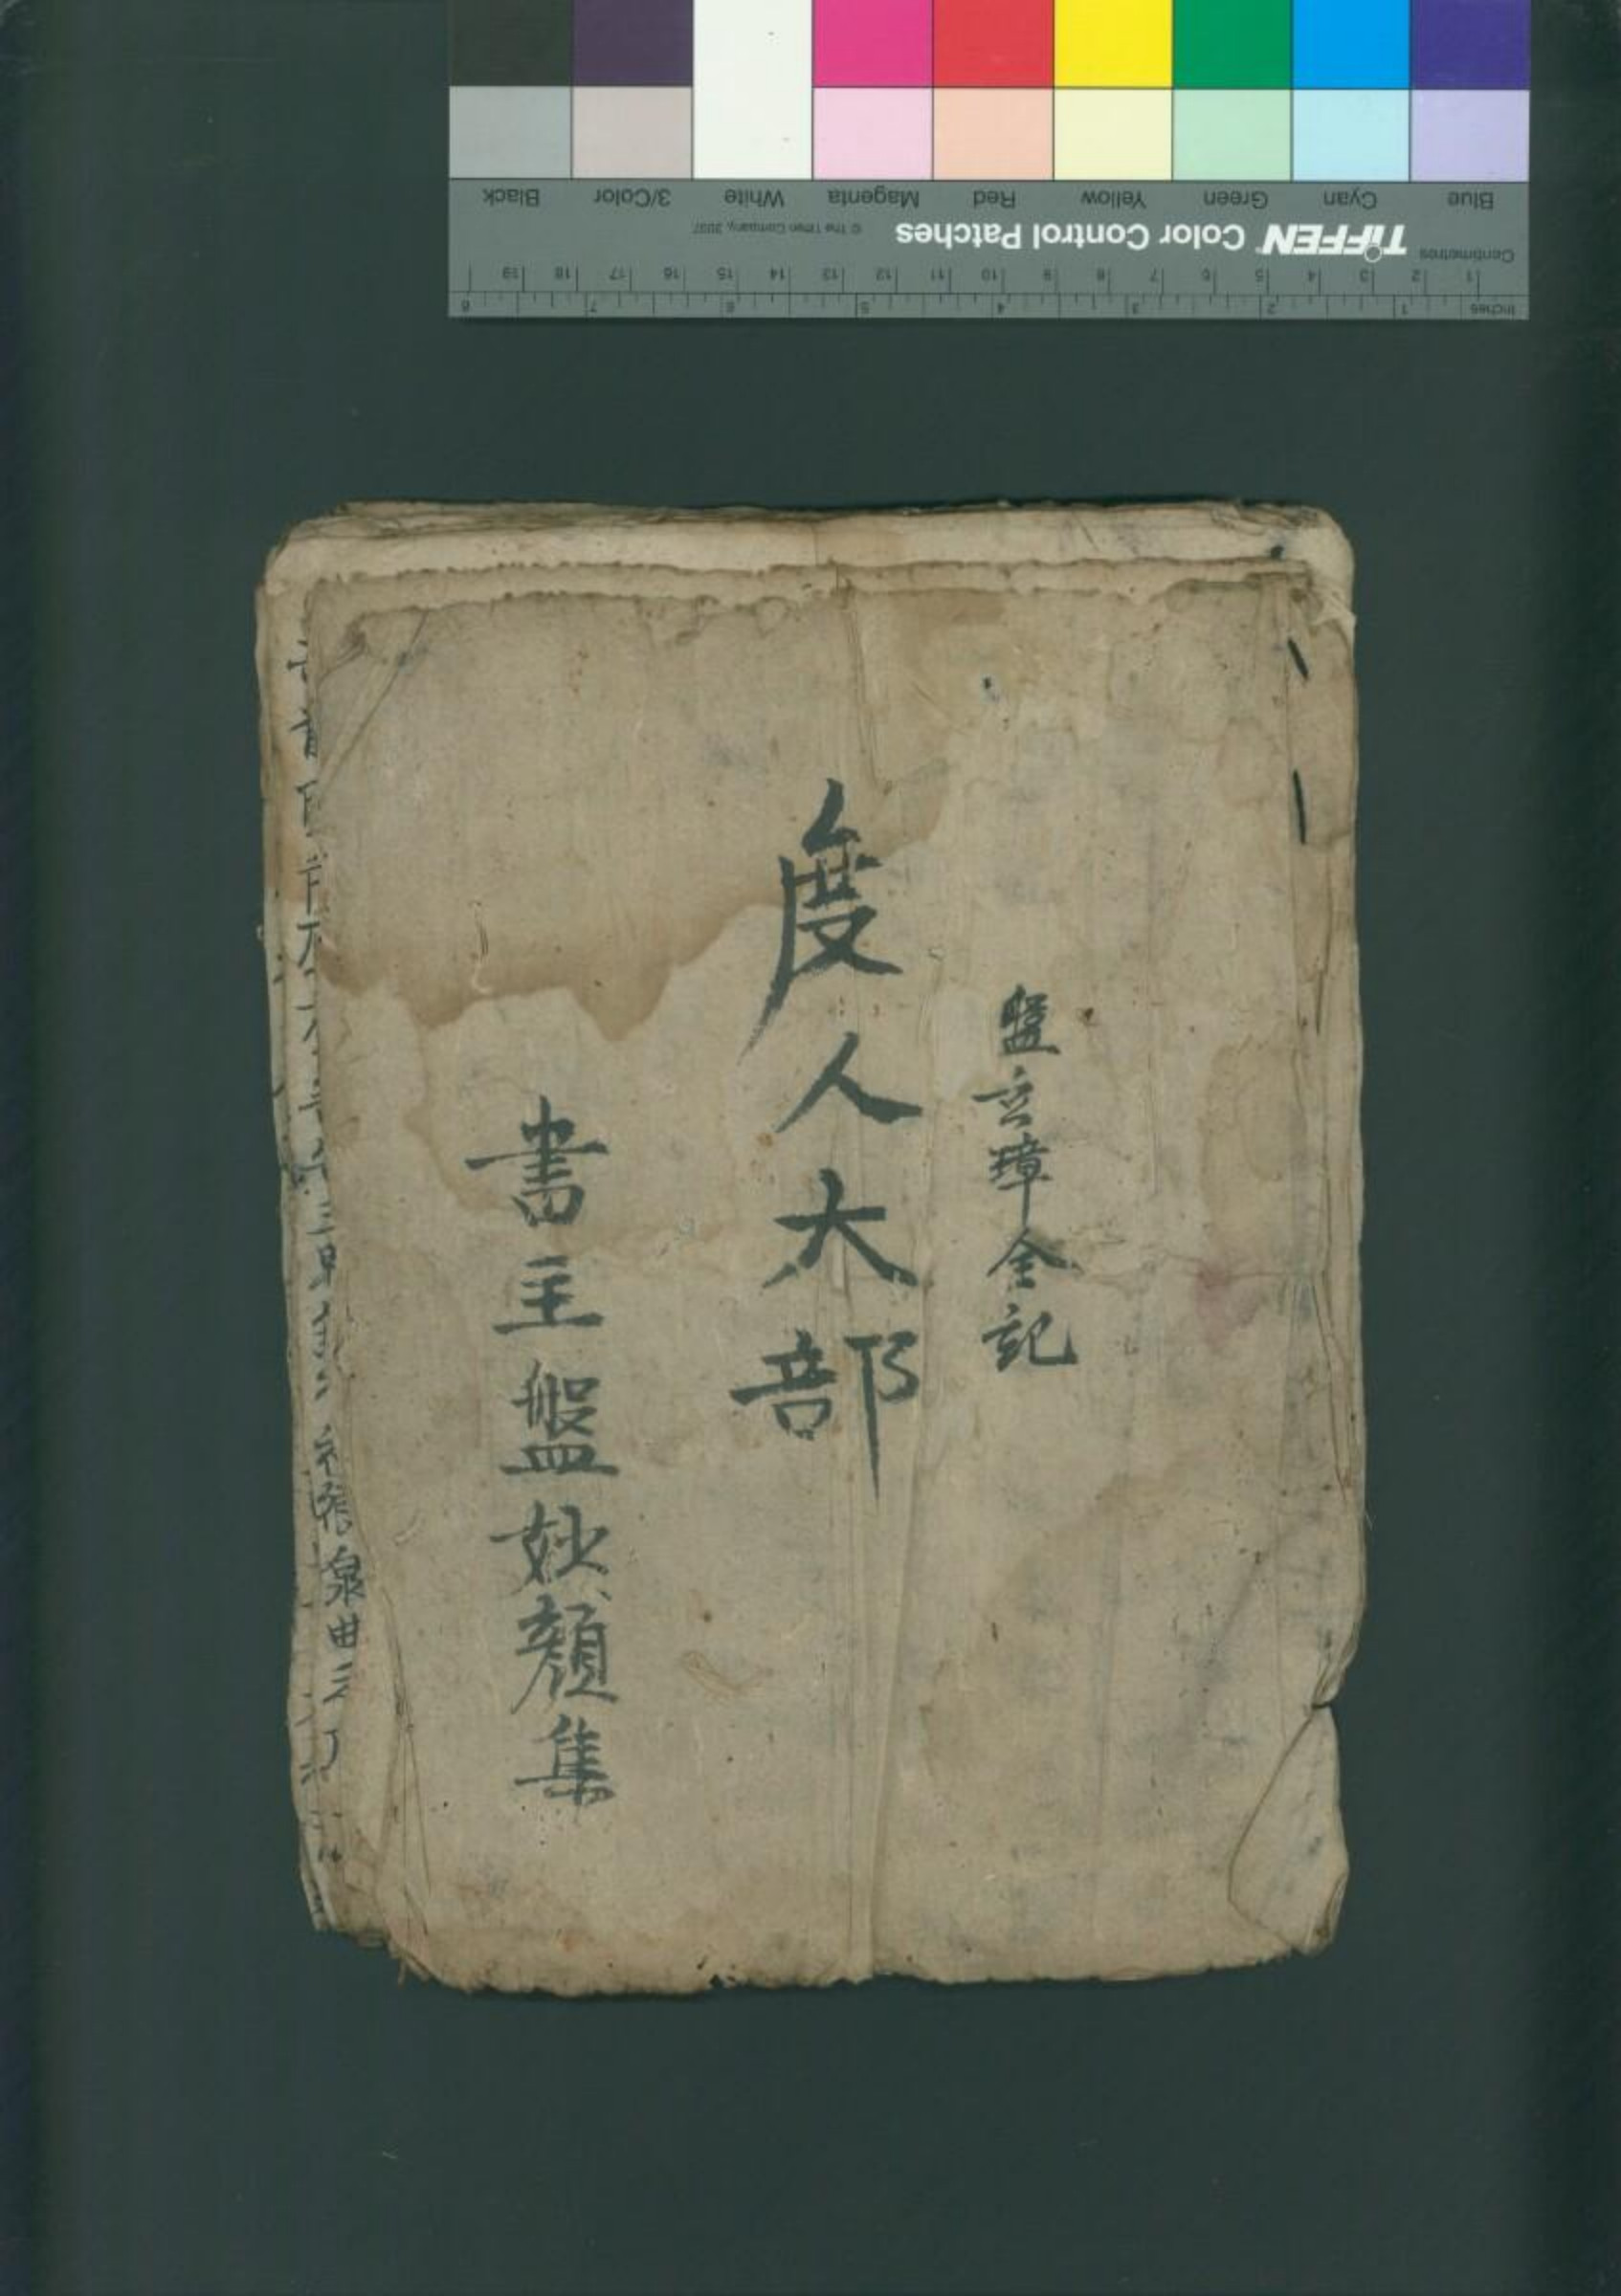 盤玄璋全記
度人大部
書主盤妙顏集
泉曲三
Blue Cyan Green Yellow Red Magenta White 3/Color Black
TIFFEN Color Control Patches © The Tiffen Company, 2007
Centimetres 1 2 3 4 5 6 7 8 9 10 11 12 13 14 15 16 17 18 19
Inches 1 2 3 4 5 6 7 8